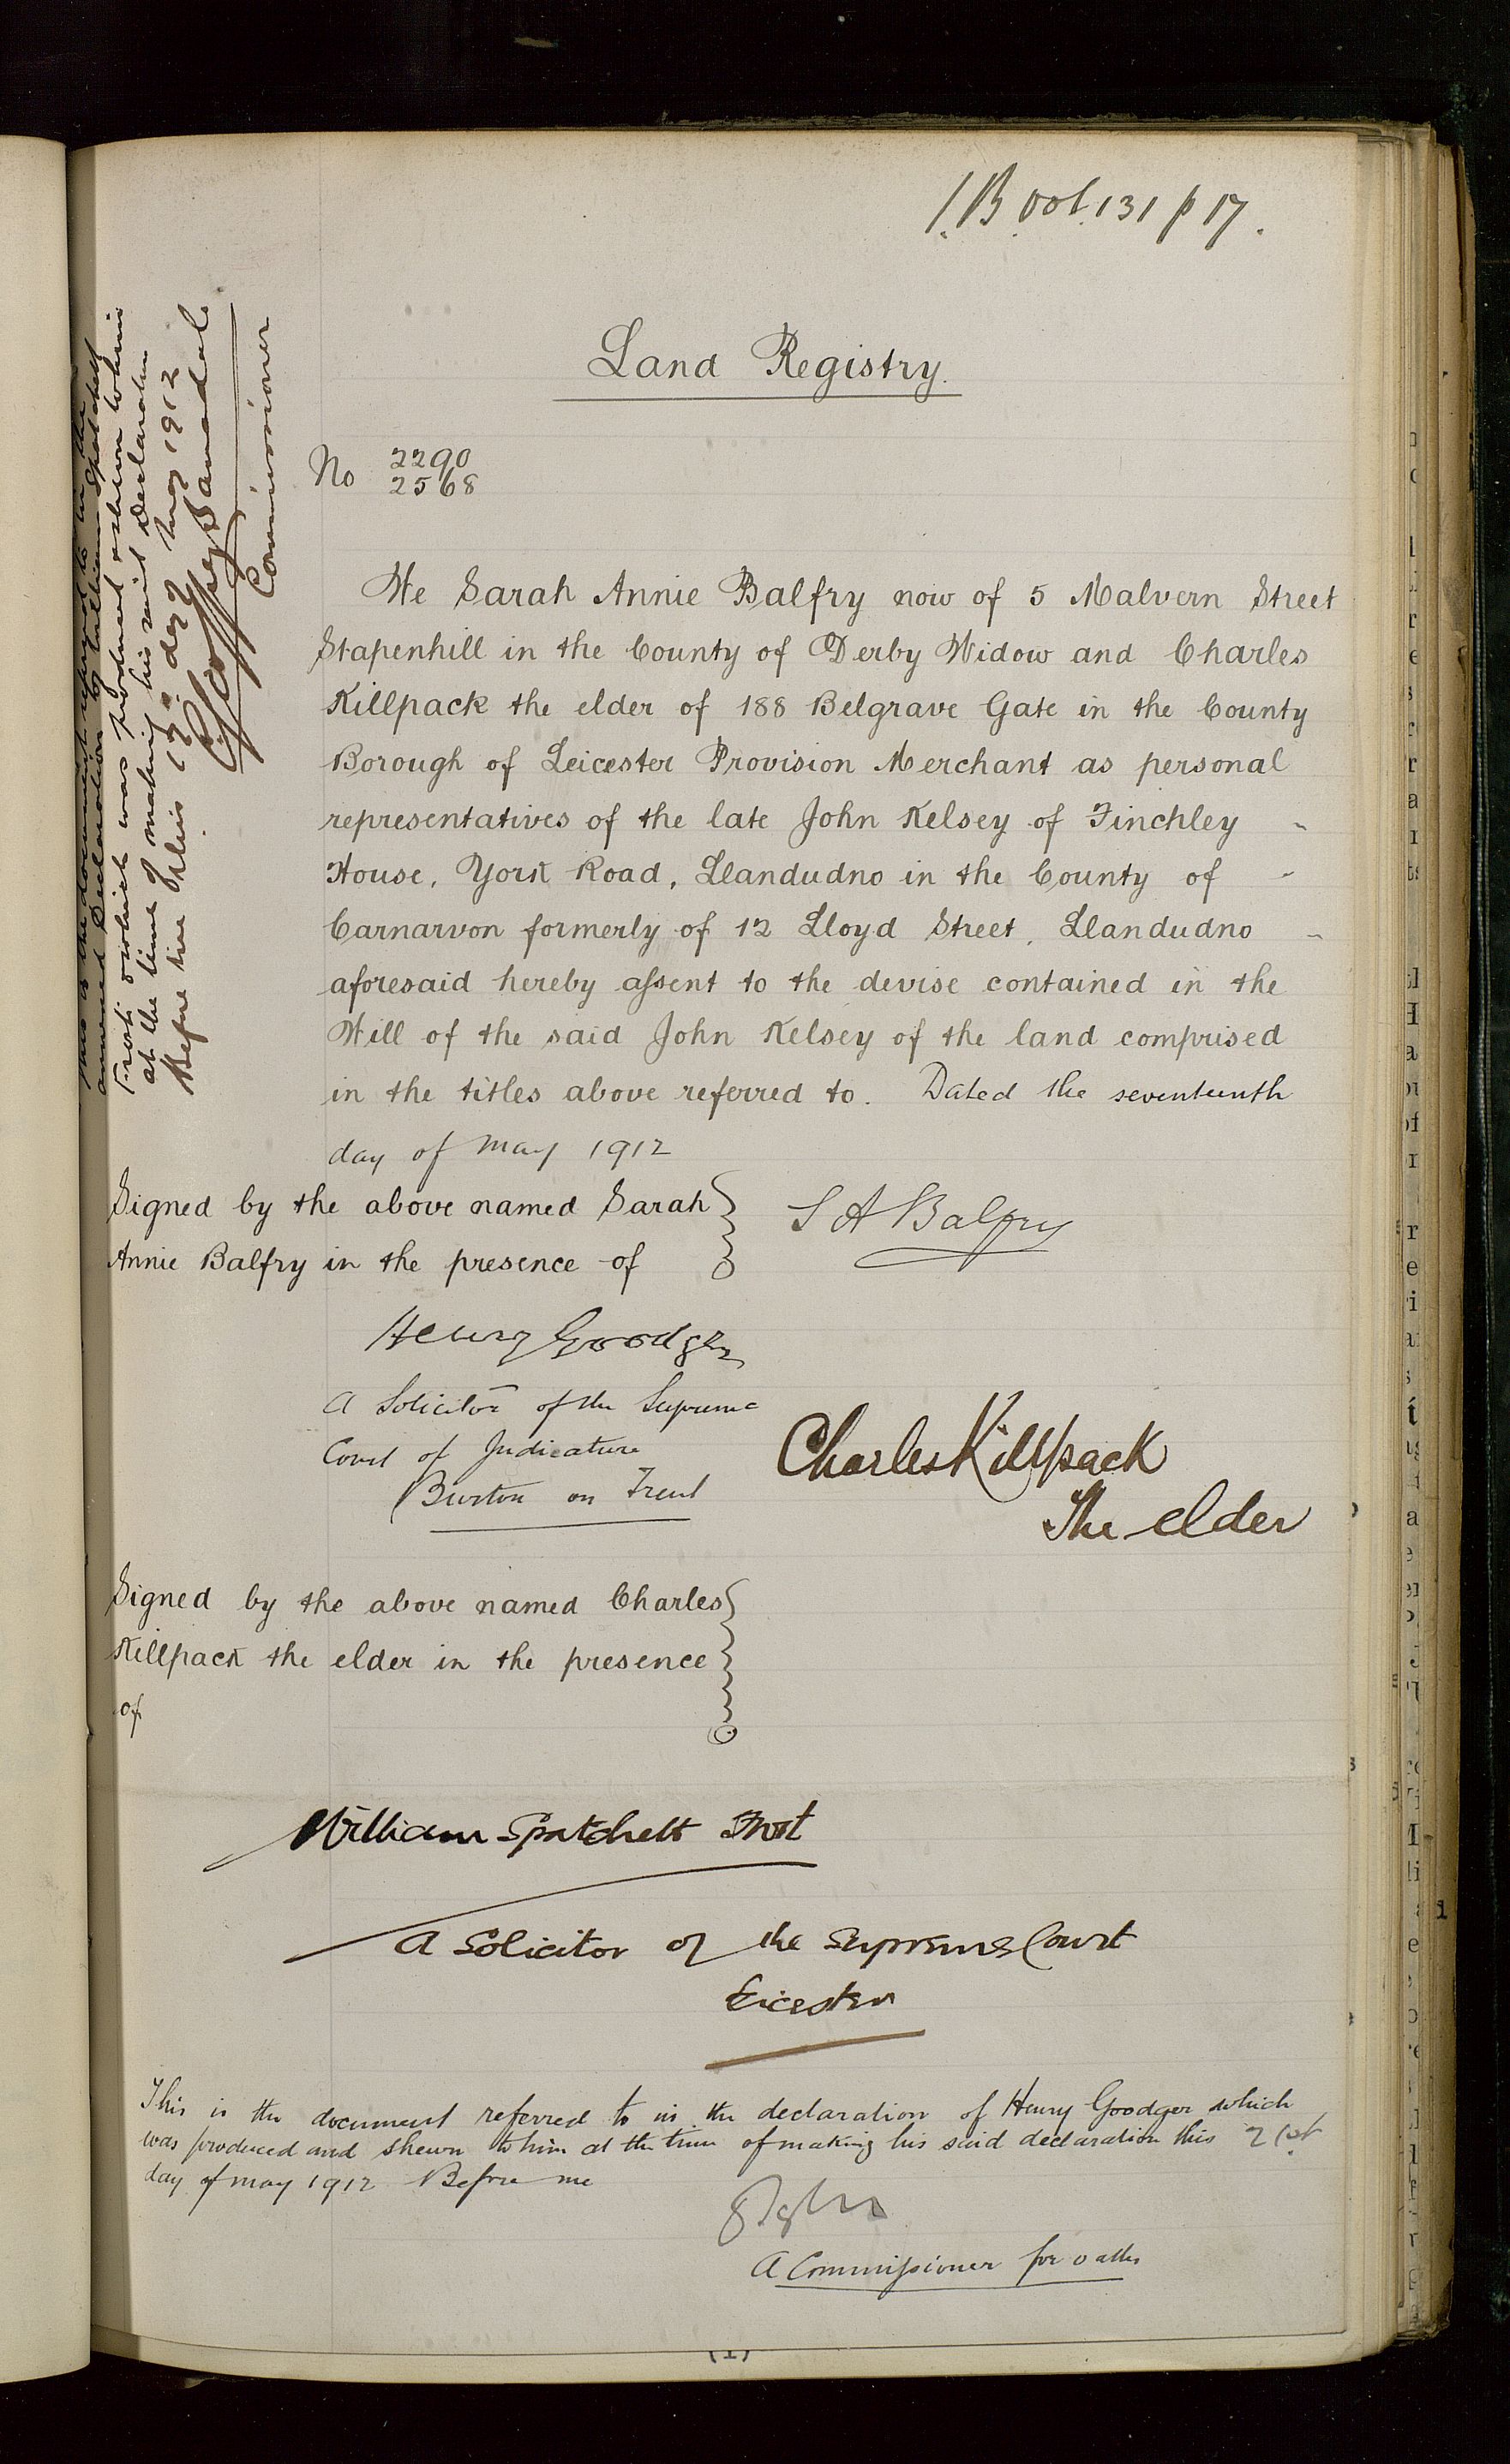 1.B. vol. 131 p 17.
Land Registry.
No 2290
2568
We Sarah Annie Balfry now of 5 Malvern Street
Stapenhill in the County of Derby Widow and Charles
Killpack the elder of 188 Belgrave Gate in the County
Borough of Leicester Provision Merchant as personal
representatives of the late John Kelsey of Finchley
House, York Road, Llandudno in the County of
Carnarvon formerly of 12 Lloyd Street, Llandudno
aforesaid hereby assent to the devise contained in the
Will of the said John Kelsey of the land comprised
in the titles above referred to. Dated the seventeenth
day of May 1912
Signed by the above named Sarah
Annie Balfry in the presence of
S A Balfry
Henry Goodger
A Solicitor of the Supreme
Court of Judicature
Burton on Trent
Charles Killpack
The elder
Signed by the above named Charles
Killpack the elder in the presence
of
William Spatchett Trot
A Solicitor of the Supreme Court
Leicester
This is the document referred to in the declaration of Henry Goodger which
was produced and shewn to him at the time of making his said declaration this 21st
day of May 1912 Before me
A Commissioner for oaths
This is the document referred to in the
annexed Declaration by William Spatchett
Trot which was produced & shewn to him
at the time of making his said Declaration
Before me this 17th day of May 1912
Commissioner